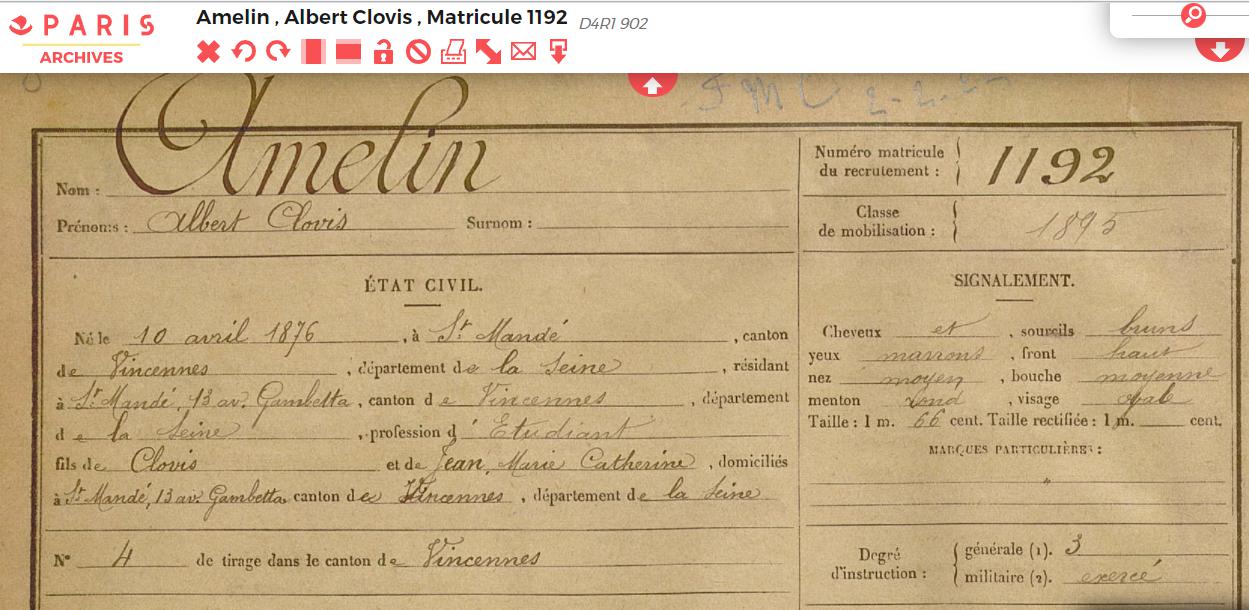 PARIS
ARCHIVES
Amelin , Albert Clovis , Matricule 1192 D4R1 902
F M C 2-2.
Nom : Amelin
Prénoms : Albert Clovis Surnom :
Numéro matricule du recrutement : 1192
Classe de mobilisation : 1895
ÉTAT CIVIL.
Né le 10 avril 1876, à St Mandé, canton
de Vincennes, département de la Seine, résidant
à St Mandé, 13 av. Gambetta, canton de Vincennes, département
de la Seine, profession d' Etudiant
fils de Clovis et de Jean, Marie Catherine, domiciliés
à St Mandé, 13 av. Gambetta canton de Vincennes, département de la Seine
N° 4 de tirage dans le canton de Vincennes
SIGNALEMENT.
Cheveux et, sourcils bruns
yeux marrons, front haut
nez moyen, bouche moyenne
menton rond, visage ovale
Taille : 1 m. 66 cent. Taille rectifiée : 1 m. cent.
MARQUES PARTICULIÈRES :
"
Degré d'instruction :
générale (1). 3
militaire (2). exercé